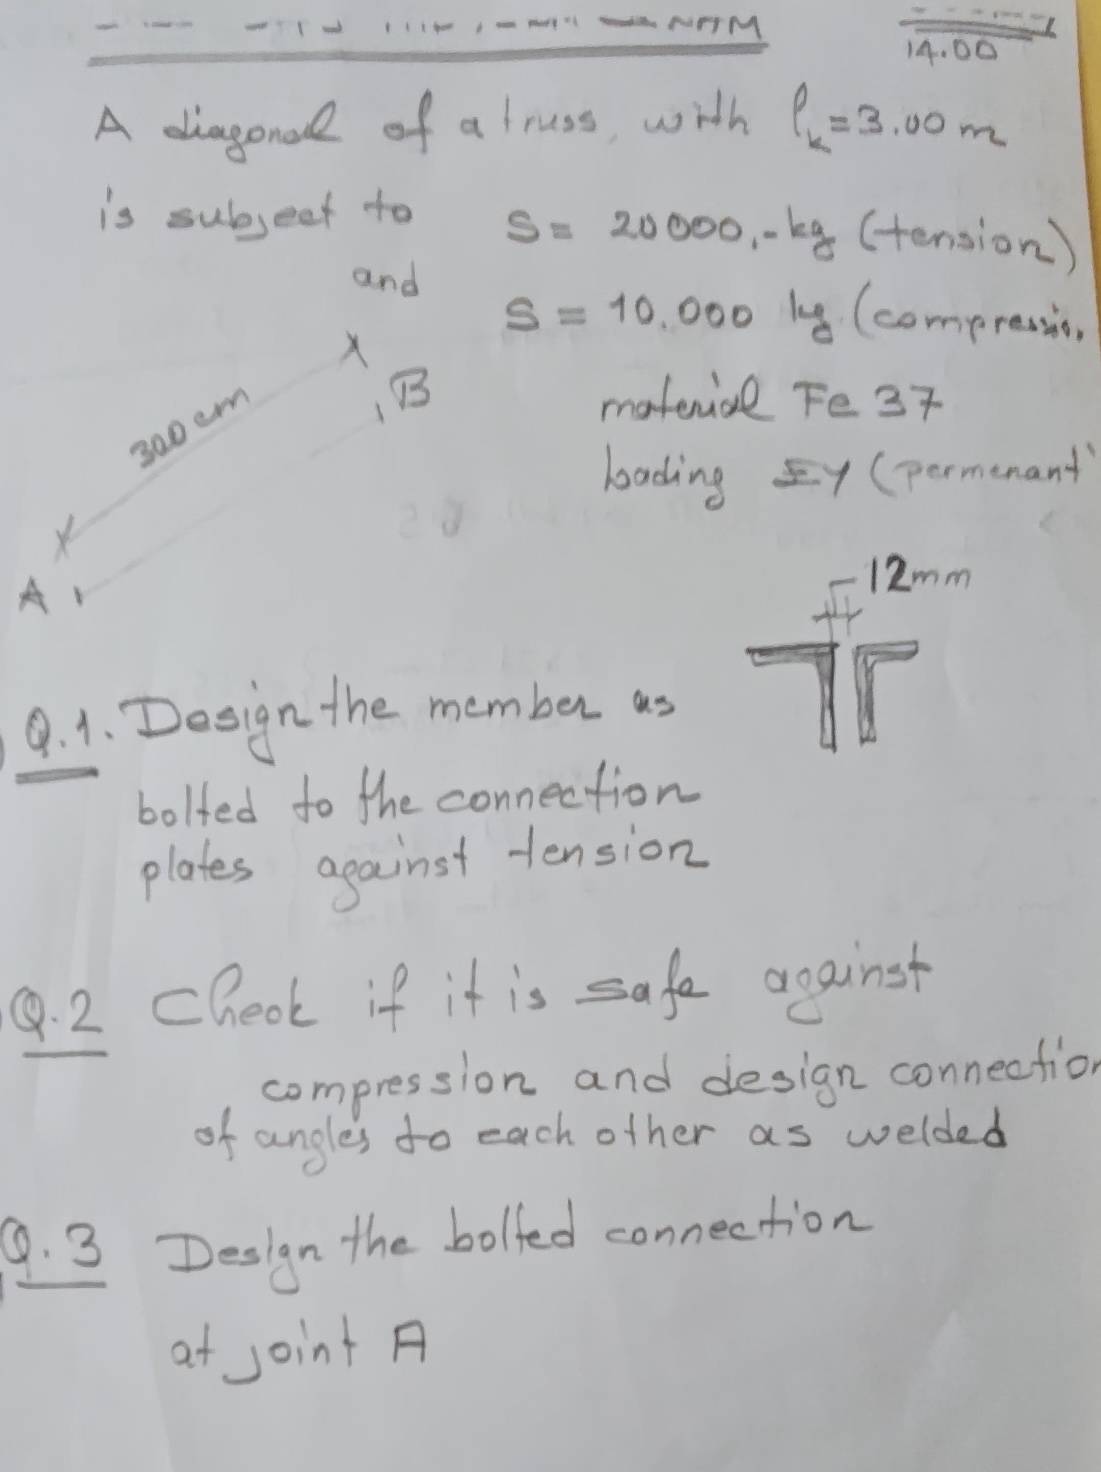 14.00
A diagonal of a truss, with lk=3.00 m
is subject to S= 20000,-kg (tension)
and S = 10.000 kg (compressio
300 cm
B
material Fe 37
loading EY (permenant
A
12mm
Q.1. Design the member as
bolted to the connection
plates against tension
Q.2 Check if it is safe against
compression and design connection
of angles to each other as welded
Q.3 Design the bolted connection
at joint A